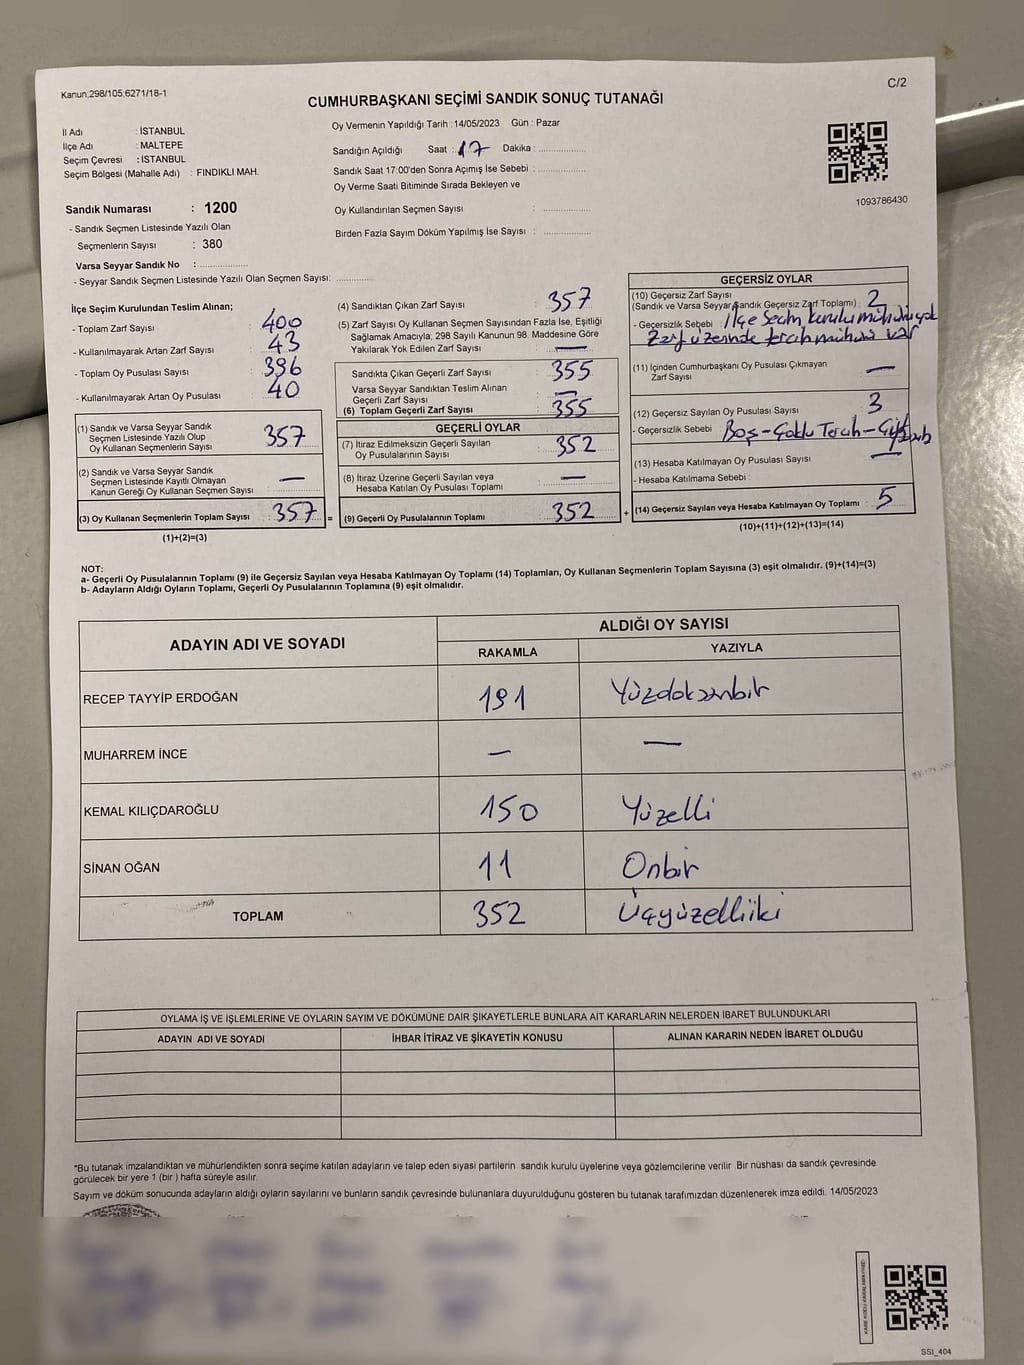 Kanun:298/105;6271/18-1
C/2
CUMHURBAŞKANI SEÇİMİ SANDIK SONUÇ TUTANAĞI
İl Adı : İSTANBUL
İlçe Adı : MALTEPE
Seçim Çevresi : İSTANBUL
Seçim Bölgesi (Mahalle Adı) : FINDIKLI MAH.
Sandık Numarası : 1200
- Sandık Seçmen Listesinde Yazılı Olan
Seçmenlerin Sayısı : 380
Varsa Seyyar Sandık No :
- Seyyar Sandık Seçmen Listesinde Yazılı Olan Seçmen Sayısı:
Oy Vermenin Yapıldığı Tarih : 14/05/2023 Gün : Pazar
Sandığın Açıldığı Saat : 17 Dakika :
Sandık Saat 17:00'den Sonra Açımış İse Sebebi :
Oy Verme Saati Bitiminde Sırada Bekleyen ve
Oy Kullandırılan Seçmen Sayısı :
Birden Fazla Sayım Döküm Yapılmış İse Sayısı :
1093786430
İlçe Seçim Kurulundan Teslim Alınan;
- Toplam Zarf Sayısı : 400
- Kullanılmayarak Artan Zarf Sayısı : 43
- Toplam Oy Pusulası Sayısı : 396
- Kullanılmayarak Artan Oy Pusulası : 40
(1) Sandık ve Varsa Seyyar Sandık
Seçmen Listesinde Yazılı Olup
Oy Kullanan Seçmen Sayısı : 357
(2) Sandık ve Varsa Seyyar Sandık
Seçmen Listesinde Kayıtlı Olmayan
Kanun Gereği Oy Kullanan Seçmen Sayısı : —
(3) Oy Kullanan Seçmenlerin Toplam Sayısı : 357 =
(1)+(2)=(3)
(4) Sandıktan Çıkan Zarf Sayısı : 357
(5) Zarf Sayısı Oy Kullanan Seçmen Sayısından Fazla İse, Eşitliği
Sağlamak Amacıyla; 298 Sayılı Kanunun 98. Maddesine Göre
Yakılarak Yok Edilen Zarf Sayısı : —
Sandıkta Çıkan Geçerli Zarf Sayısı : 355
Varsa Seyyar Sandıktan Teslim Alınan
Geçerli Zarf Sayısı : —
(6) Toplam Geçerli Zarf Sayısı : 355
GEÇERLİ OYLAR
(7) İtiraz Edilmeksizin Geçerli Sayılan
Oy Pusulalarının Sayısı : 352
(8) İtiraz Üzerine Geçerli Sayılan veya
Hesaba Katılan Oy Pusulası Toplamı : —
(9) Geçerli Oy Pusulalarının Toplamı : 352 +
GEÇERSİZ OYLAR
(10) Geçersiz Zarf Sayısı
(Sandık ve Varsa Seyyar Sandık Geçersiz Zarf Toplamı) : 2
- Geçersizlik Sebebi : İlçe Seçim kurulu mühürü yok
Zarf üzerinde tercih mühürü var
(11) İçinden Cumhurbaşkanı Oy Pusulası Çıkmayan
Zarf Sayısı : —
(12) Geçersiz Sayılan Oy Pusulası Sayısı : 3
- Geçersizlik Sebebi : Boş-Çoklu Tercih-
(13) Hesaba Katılmayan Oy Pusulası Sayısı : —
- Hesaba Katılmama Sebebi :
(14) Geçersiz Sayılan veya Hesaba Katılmayan Oy Toplamı : 5
(10)+(11)+(12)+(13)=(14)
NOT:
a- Geçerli Oy Pusulalarının Toplamı (9) ile Geçersiz Sayılan veya Hesaba Katılmayan Oy Toplamı (14) Toplamları, Oy Kullanan Seçmenlerin Toplam Sayısına (3) eşit olmalıdır. (9)+(14)=(3)
b- Adayların Aldığı Oyların Toplamı, Geçerli Oy Pusulalarının Toplamına (9) eşit olmalıdır.
ADAYIN ADI VE SOYADI
ALDIĞI OY SAYISI
RAKAMLA YAZIYLA
RECEP TAYYİP ERDOĞAN 191 Yüzdoksanbir
MUHARREM İNCE — —
KEMAL KILIÇDAROĞLU 150 Yüzelli
SİNAN OĞAN 11 Onbir
TOPLAM 352 Üçyüzelliiki
OYLAMA İŞ VE İŞLEMLERİNE VE OYLARIN SAYIM VE DÖKÜMÜNE DAİR ŞİKAYETLERLE BUNLARA AİT KARARLARIN NELERDEN İBARET BULUNDUKLARI
ADAYIN ADI VE SOYADI İHBAR İTİRAZ VE ŞİKAYETİN KONUSU ALINAN KARARIN NEDEN İBARET OLDUĞU
*Bu tutanak imzalandıktan ve mühürlendikten sonra seçime katılan adayların ve talep eden siyasi partilerin sandık kurulu üyelerine veya gözlemcilerine verilir .Bir nüshası da sandık çevresinde
görülecek bir yere 1 (bir ) hafta süreyle asılır.
Sayım ve döküm sonucunda adayların aldığı oyların sayılarını ve bunların sandık çevresinde bulunanlara duyurulduğunu gösteren bu tutanak tarafımızdan düzenlenerek imza edildi. 14/05/2023
SSI_404